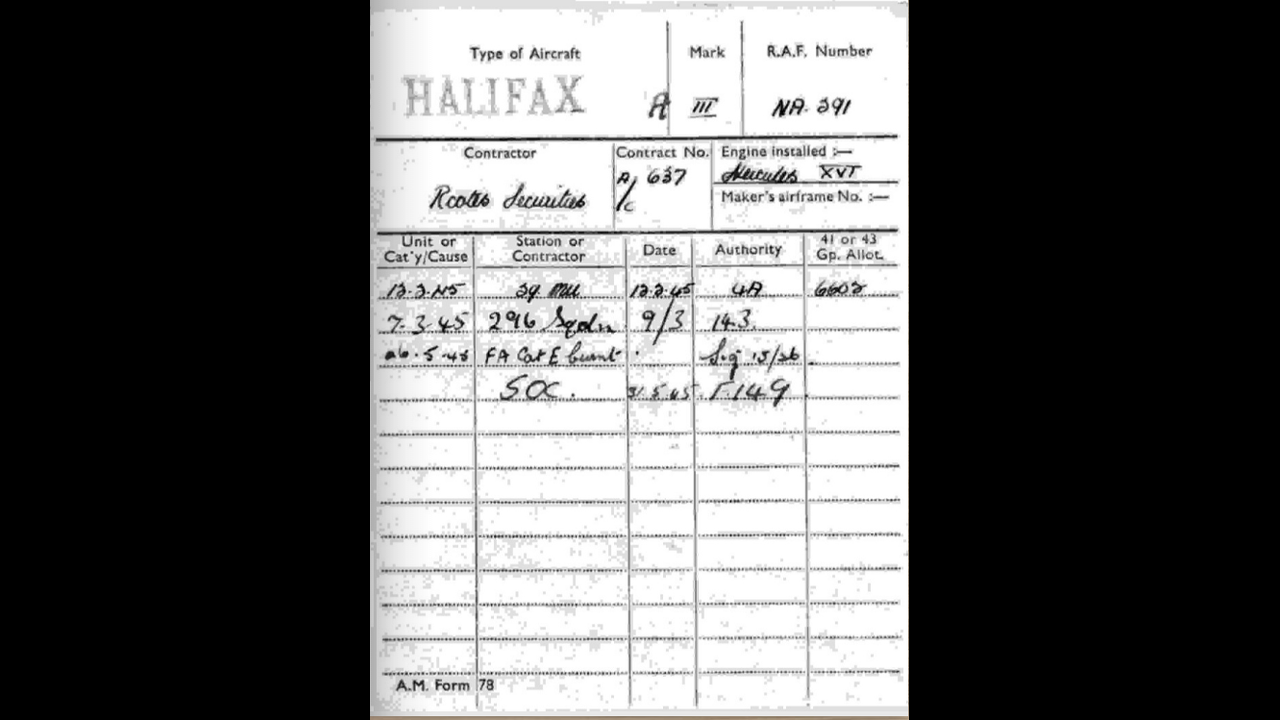 Type of Aircraft Mark R.A.F. Number
HALIFAX A III NA. 391
Contractor Contract No. Engine installed :—
Rootes Securities A/C 637 Hercules XVI
Maker's airframe No. :—
Unit or Cat'y/Cause Station or Contractor Date Authority 41 or 43 Gp. Allot.
12.2.45 29 MU 12.2.45 4A 6602
7.3.45 296 Sqdn 9/3 143
26.5.45 FA Cat E burnt Sig 15/26
SOC. 31.5.45 F.149
A.M. Form 78